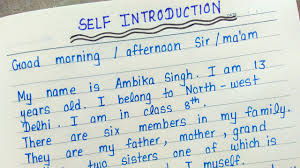 SELF INTRODUCTION
Good morning / afternoon Sir / ma'am
My name is Ambika Singh. I am 13
years old. I belong to North-west
Delhi. I am in class 8th.
There are six members in my family.
They are my father, mother, grand
two sisters one of which is
I myself.